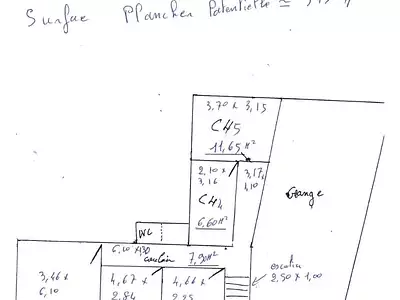 Surface Plancher Potentielle ≃
3,70 x 3,15
CH5
11,65 M²
2,10 x
3,16
3,17 x
1,10
CH4
6,60 M²
Grange
WC
6,10 x 1,30
couloir
7,90 M²
escalier
2,90 x 1,00
3,46 x
6,10
4,67 x
2,84
4,66 x
2,25